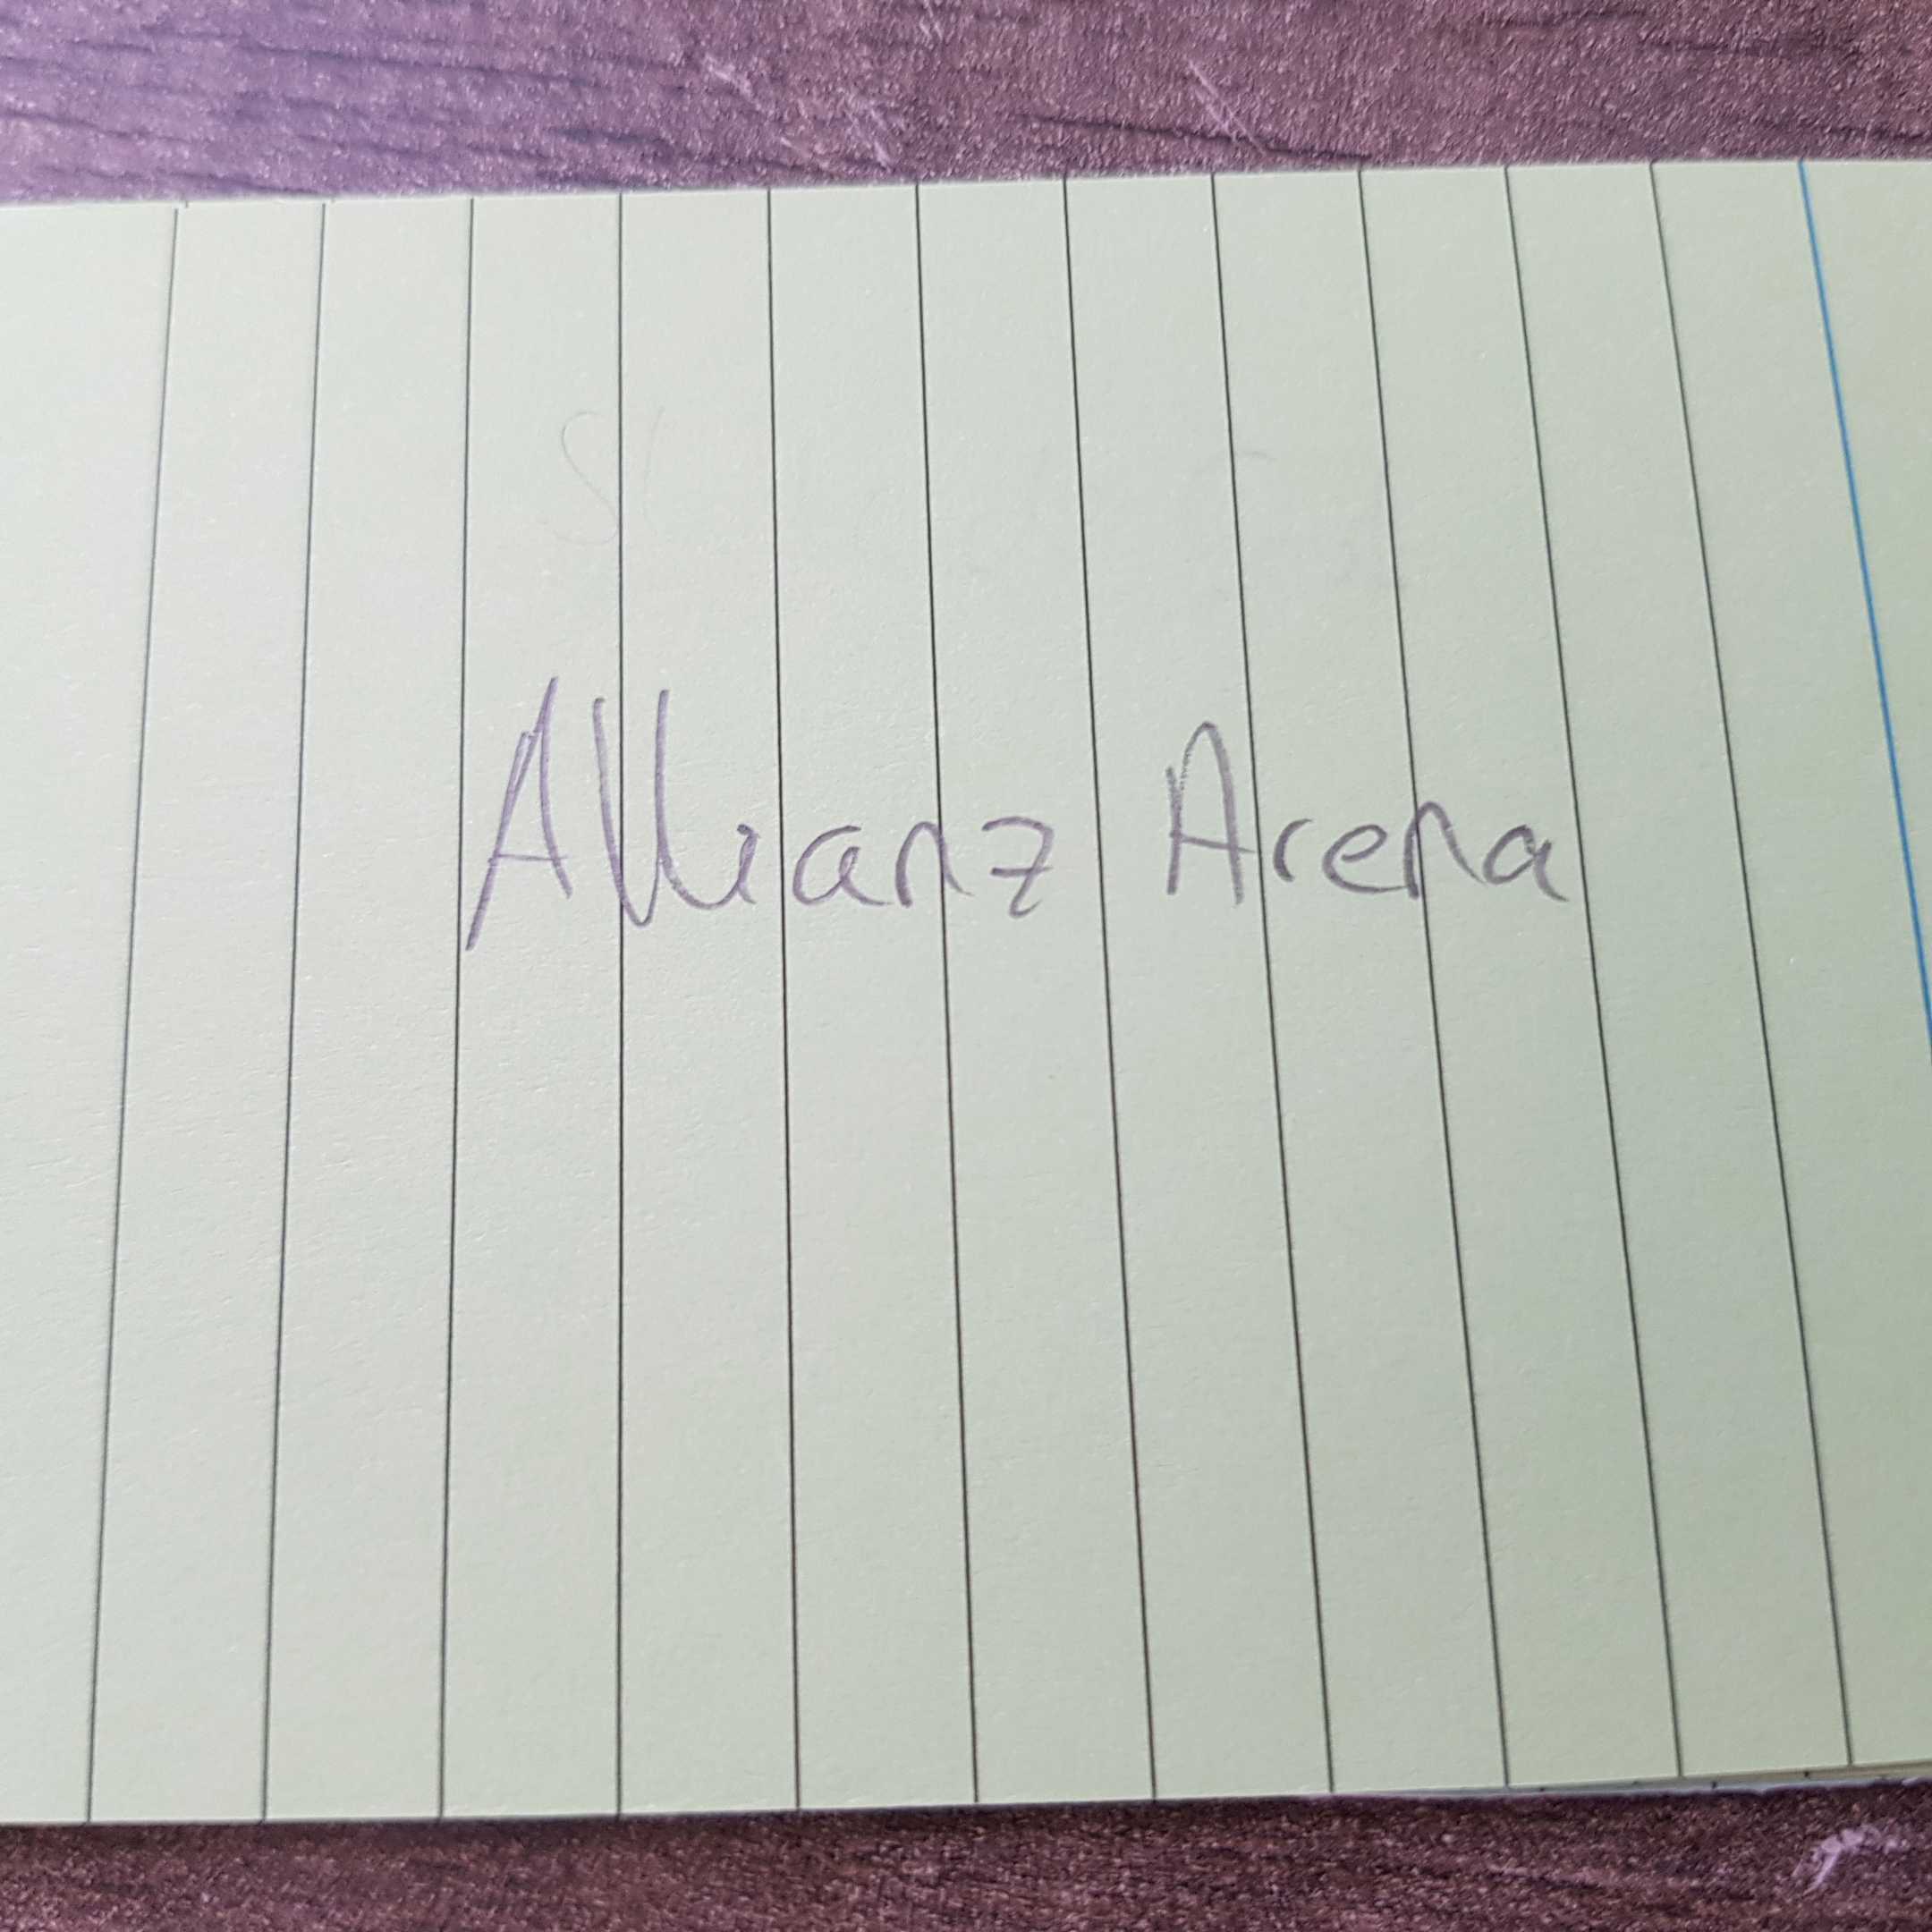 Allianz Arena